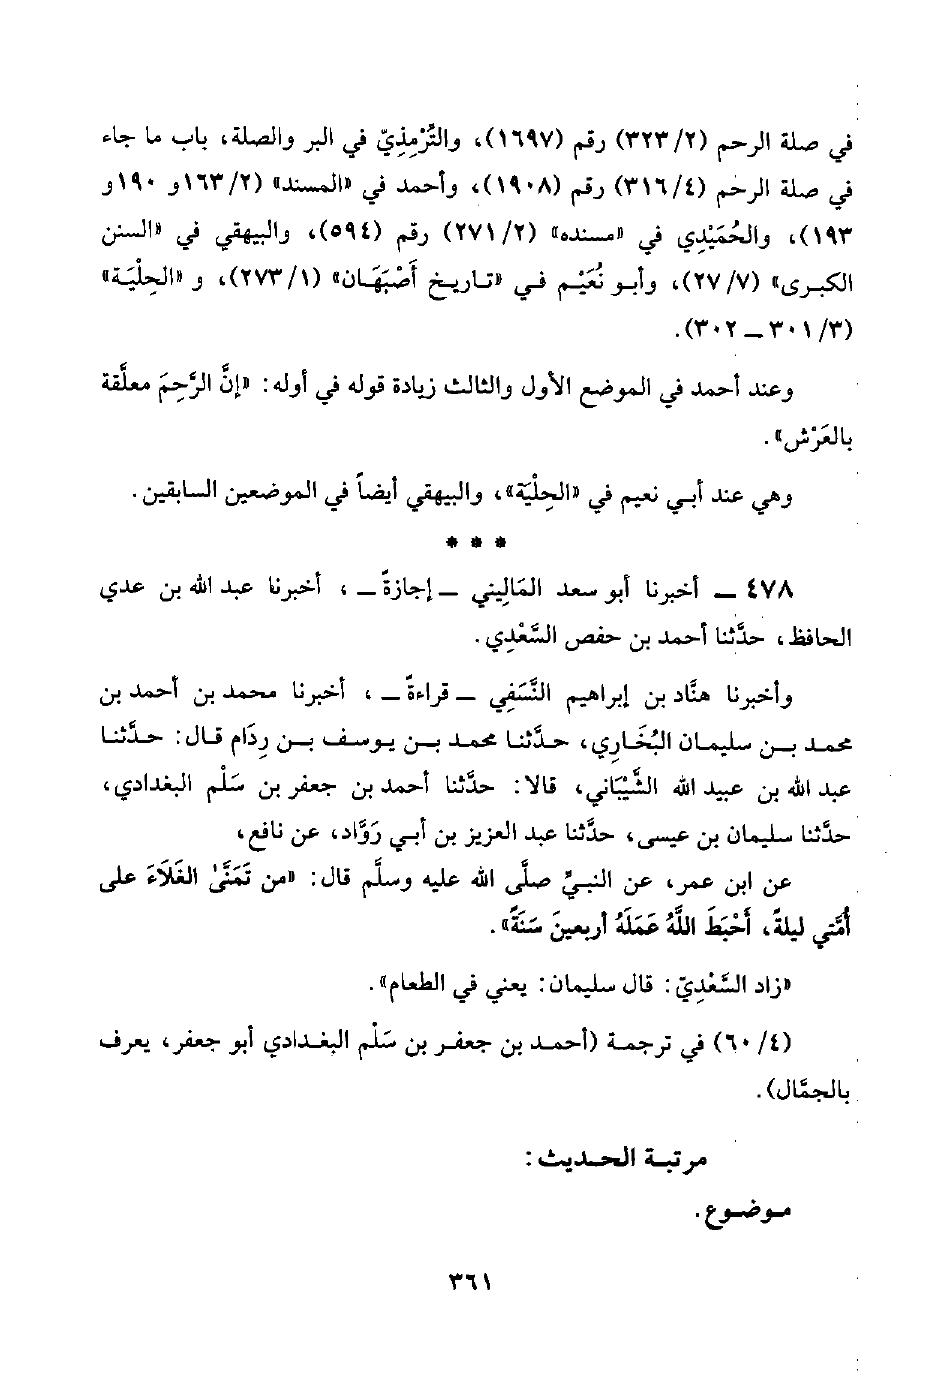 في صلة الرحم (٣٢٣/٢) رقم (١٦٩٧)، والتُّرْمِذِيّ في البر والصلة، باب ما جاء
في صلة الرحم (٣١٦/٤) رقم (١٩٠٨)، وأحمد في «المسند» (١٦٣/٢و ١٩٠و
١٩٣)، والحُمَيْدِي في «مسنده» (٢٧١/٢) رقم (٥٩٤)، والبيهقي في «السنن
الكبرى» (٢٧/٧)، وأبو نُعَيْم في «تاريخ أَصْبَهَان» (٢٧٣/١)، و «الحِلْيَة»
(٣٠١/٣ ــ ٣٠٢).
وعند أحمد في الموضع الأول والثالث زيادة قوله في أوله: «إنَّ الرَّحِمَ معلَّقة
بالعَرْش».
وهي عند أبي نعيم في «الحِلْيَة»، والبيهقي أيضاً في الموضعين السابقين.
* * *
٤٧٨ ــ أخبرنا أبو سعد المَالِيني ــ إجازةً ــ ، أخبرنا عبد الله بن عدي
الحافظ، حدَّثنا أحمد بن حفص السَّعْدِي.
وأخبرنا هنَّاد بن إبراهيم النَّسَفِي ــ قراءةً ــ ، أخبرنا محمد بن أحمد بن
محمد بن سليمان البُخَارِي، حدَّثنا محمد بن يوسف بن رِدَام قال: حدَّثنا
عبد الله بن عبيد الله الشَّيْبَاني، قالا: حدَّثنا أحمد بن جعفر بن سَلْم البغدادي،
حدَّثنا سليمان بن عيسى، حدَّثنا عبد العزيز بن أبي رَوَّاد، عن نافع،
عن ابن عمر، عن النبيِّ صلَّى الله عليه وسلَّم قال: «من تَمَنَّىٰ الغَلَاءَ على
أُمَّتي ليلةً، أَحْبَطَ اللَّهُ عَمَلَهُ أربعينَ سَنَةً».
«زاد السَّعْدِيّ: قال سليمان: يعني في الطعام».
(٦٠/٤) في ترجمة (أحمد بن جعفر بن سَلْم البغدادي أبو جعفر، يعرف
بالجمَّال).
مرتبة الحديث:
موضوع.
٣٦١